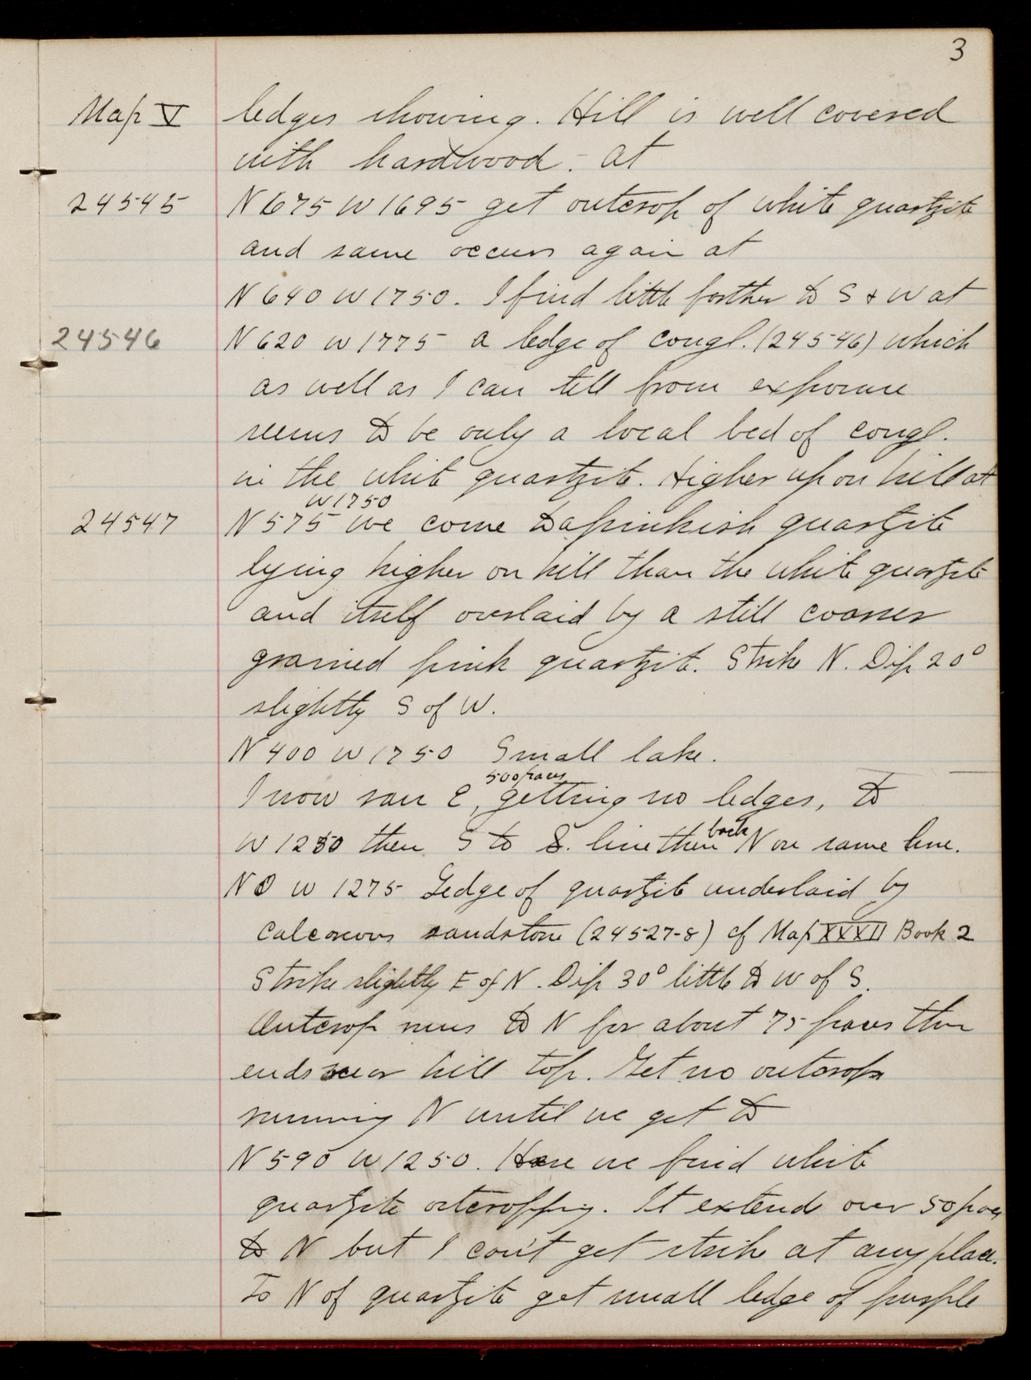 3
Map V ledges showing. Hill is well covered
with hardwood. At
24545 N675 W1695 get outcrop of white quartzite
and same occurs again at
N640 W1750. I find little farther to S + W at
24546 N620 W1775 a ledge of congl. (24546) which
as well as I can tell from exposure
seems to be only a local bed of congl.
in the white quartzite. Higher up on hill at
W1750
24547 N575 we come to a pinkish quartzite
lying higher on hill than the white quartzite
and itself overlaid by a still coarser
grained pink quartzite. Strike N. Dip 20°
slightly S of W.
N400 W1750 Small lake.
500 paces
I now ran E, getting no ledges, to
W1250 then S to S. line then back N on same line.
N0 W1275 Ledge of quartzite underlaid by
calcareous sandstone (24527-8) cf Map XXXII Book 2
Strike slightly E of N. Dip 30° little to W of S.
Outcrop runs to N for about 75 paces then
ends near hill top. Get no outcrops
running N until we get to
N590 W1250. Here we find white
quartzite outcropping. It extends over 50 paces
to N but I can't get strike at any place.
To N of quartzite get small ledge of purple